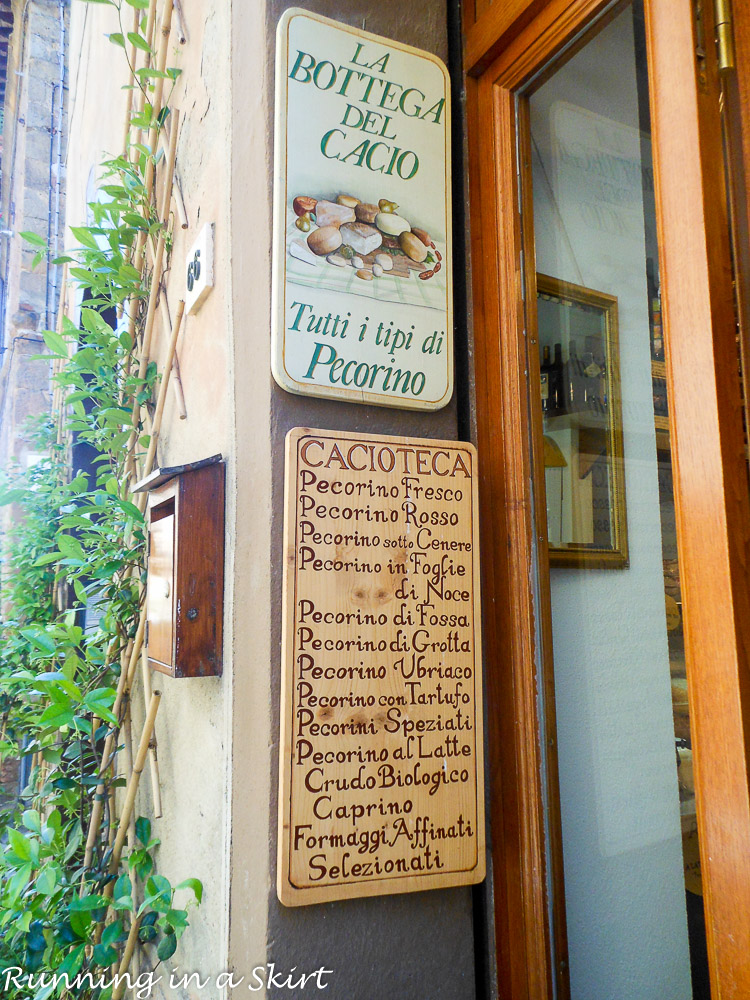 LA
BOTTEGA
DEL
CACIO
Tutti i tipi di
Pecorino
66
CACIOTECA
Pecorino Fresco
Pecorino Rosso
Pecorino sotto Cenere
Pecorino in Foglie
di Noce
Pecorino di Fossa
Pecorino di Grotta
Pecorino Ubriaco
Pecorino con Tartufo
Pecorini Speziati
Pecorino al Latte
Crudo Biologico
Caprino
Formaggi Affinati
Selezionati
Running in a Skirt